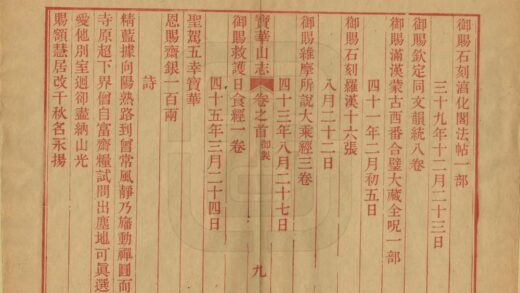 御賜石刻淳化閣法帖一部
三十九年十二月二十三日
御賜欽定同文韻統八卷
御賜滿漢蒙古西番合璧大藏全呪一部
四十一年二月初五日
御賜石刻羅漢十六張
八月二十二日
御賜維摩所說大乘經三卷
四十三年八月二十七日
寶華山志 卷之首 御製 九
御賜救護日食經一卷
四十五年三月二十四日
聖駕五幸寶華
恩賜齋銀一百兩
詩
精藍據向陽熟路到曾常風靜乃旛動禪圓而
寺原超下界僧自富齋糧試問出塵地可眞選
愛他別室迴卻盡納山光
賜額慧居改千秋名永揚